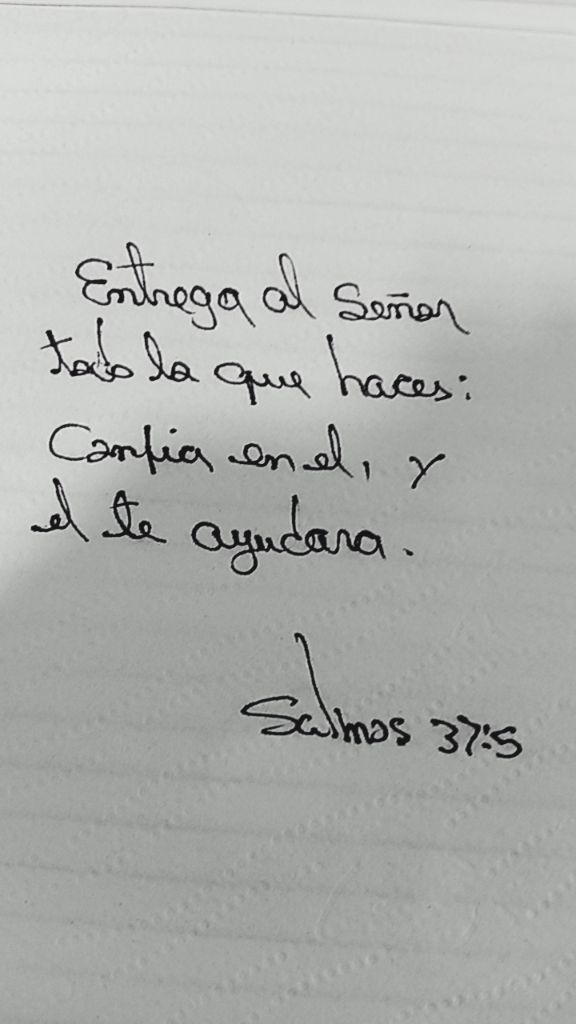 Entrega al Señor
todo lo que haces:
Confia en el, y
el te ayudara.
Salmos 37:5